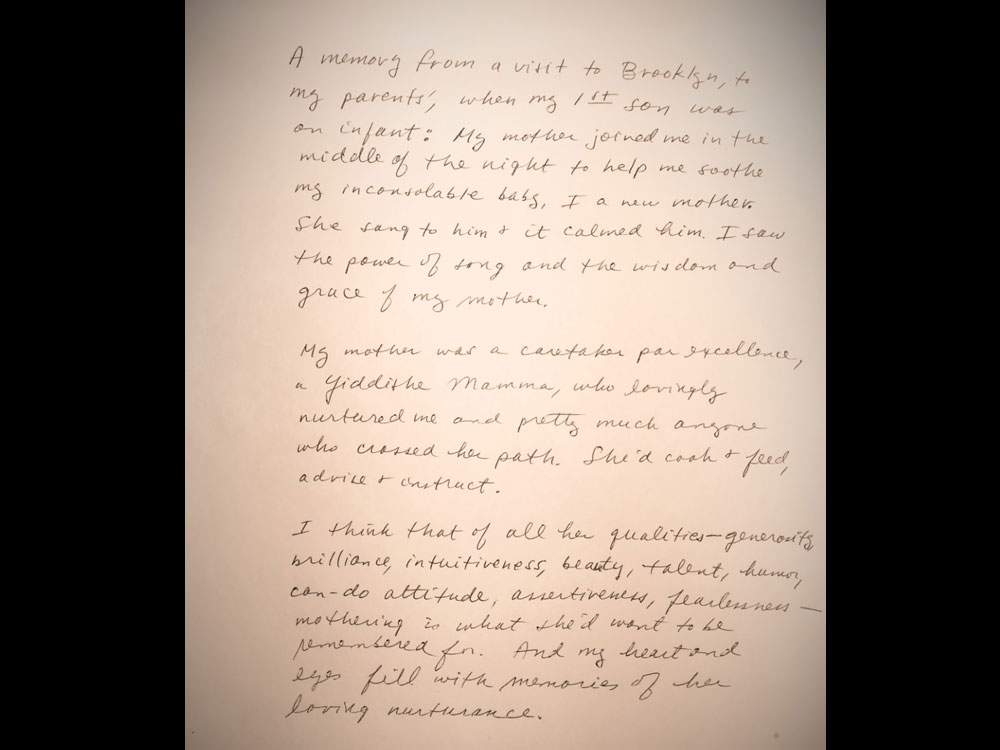 A memory from a visit to Brooklyn, to
my parents', when my 1st son was
an infant: My mother joined me in the
middle of the night to help me soothe
my inconsolable baby, I a new mother.
She sang to him & it calmed him. I saw
the power of song and the wisdom and
grace of my mother.
My mother was a caretaker par excellence,
a Yiddishe Mamma, who lovingly
nurtured me and pretty much anyone
who crossed her path. She'd cook & feed,
advise & instruct.
I think that of all her qualities—generosity,
brilliance, intuitiveness, beauty, talent, humor,
can-do attitude, assertiveness, fearlessness—
mothering is what she'd want to be
remembered for. And my heart and
eyes fill with memories of her
loving nurturance.